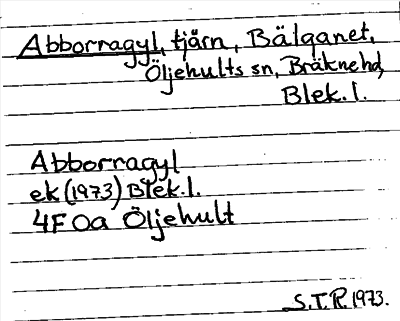 Abborragyl, tjärn, Bälganet,
Öljehults sn, Bräknehd,
Blek.l.
Abborragyl
ek (1973) Blek.l.
4F 0a Öljehult
S.T.R. 1973.